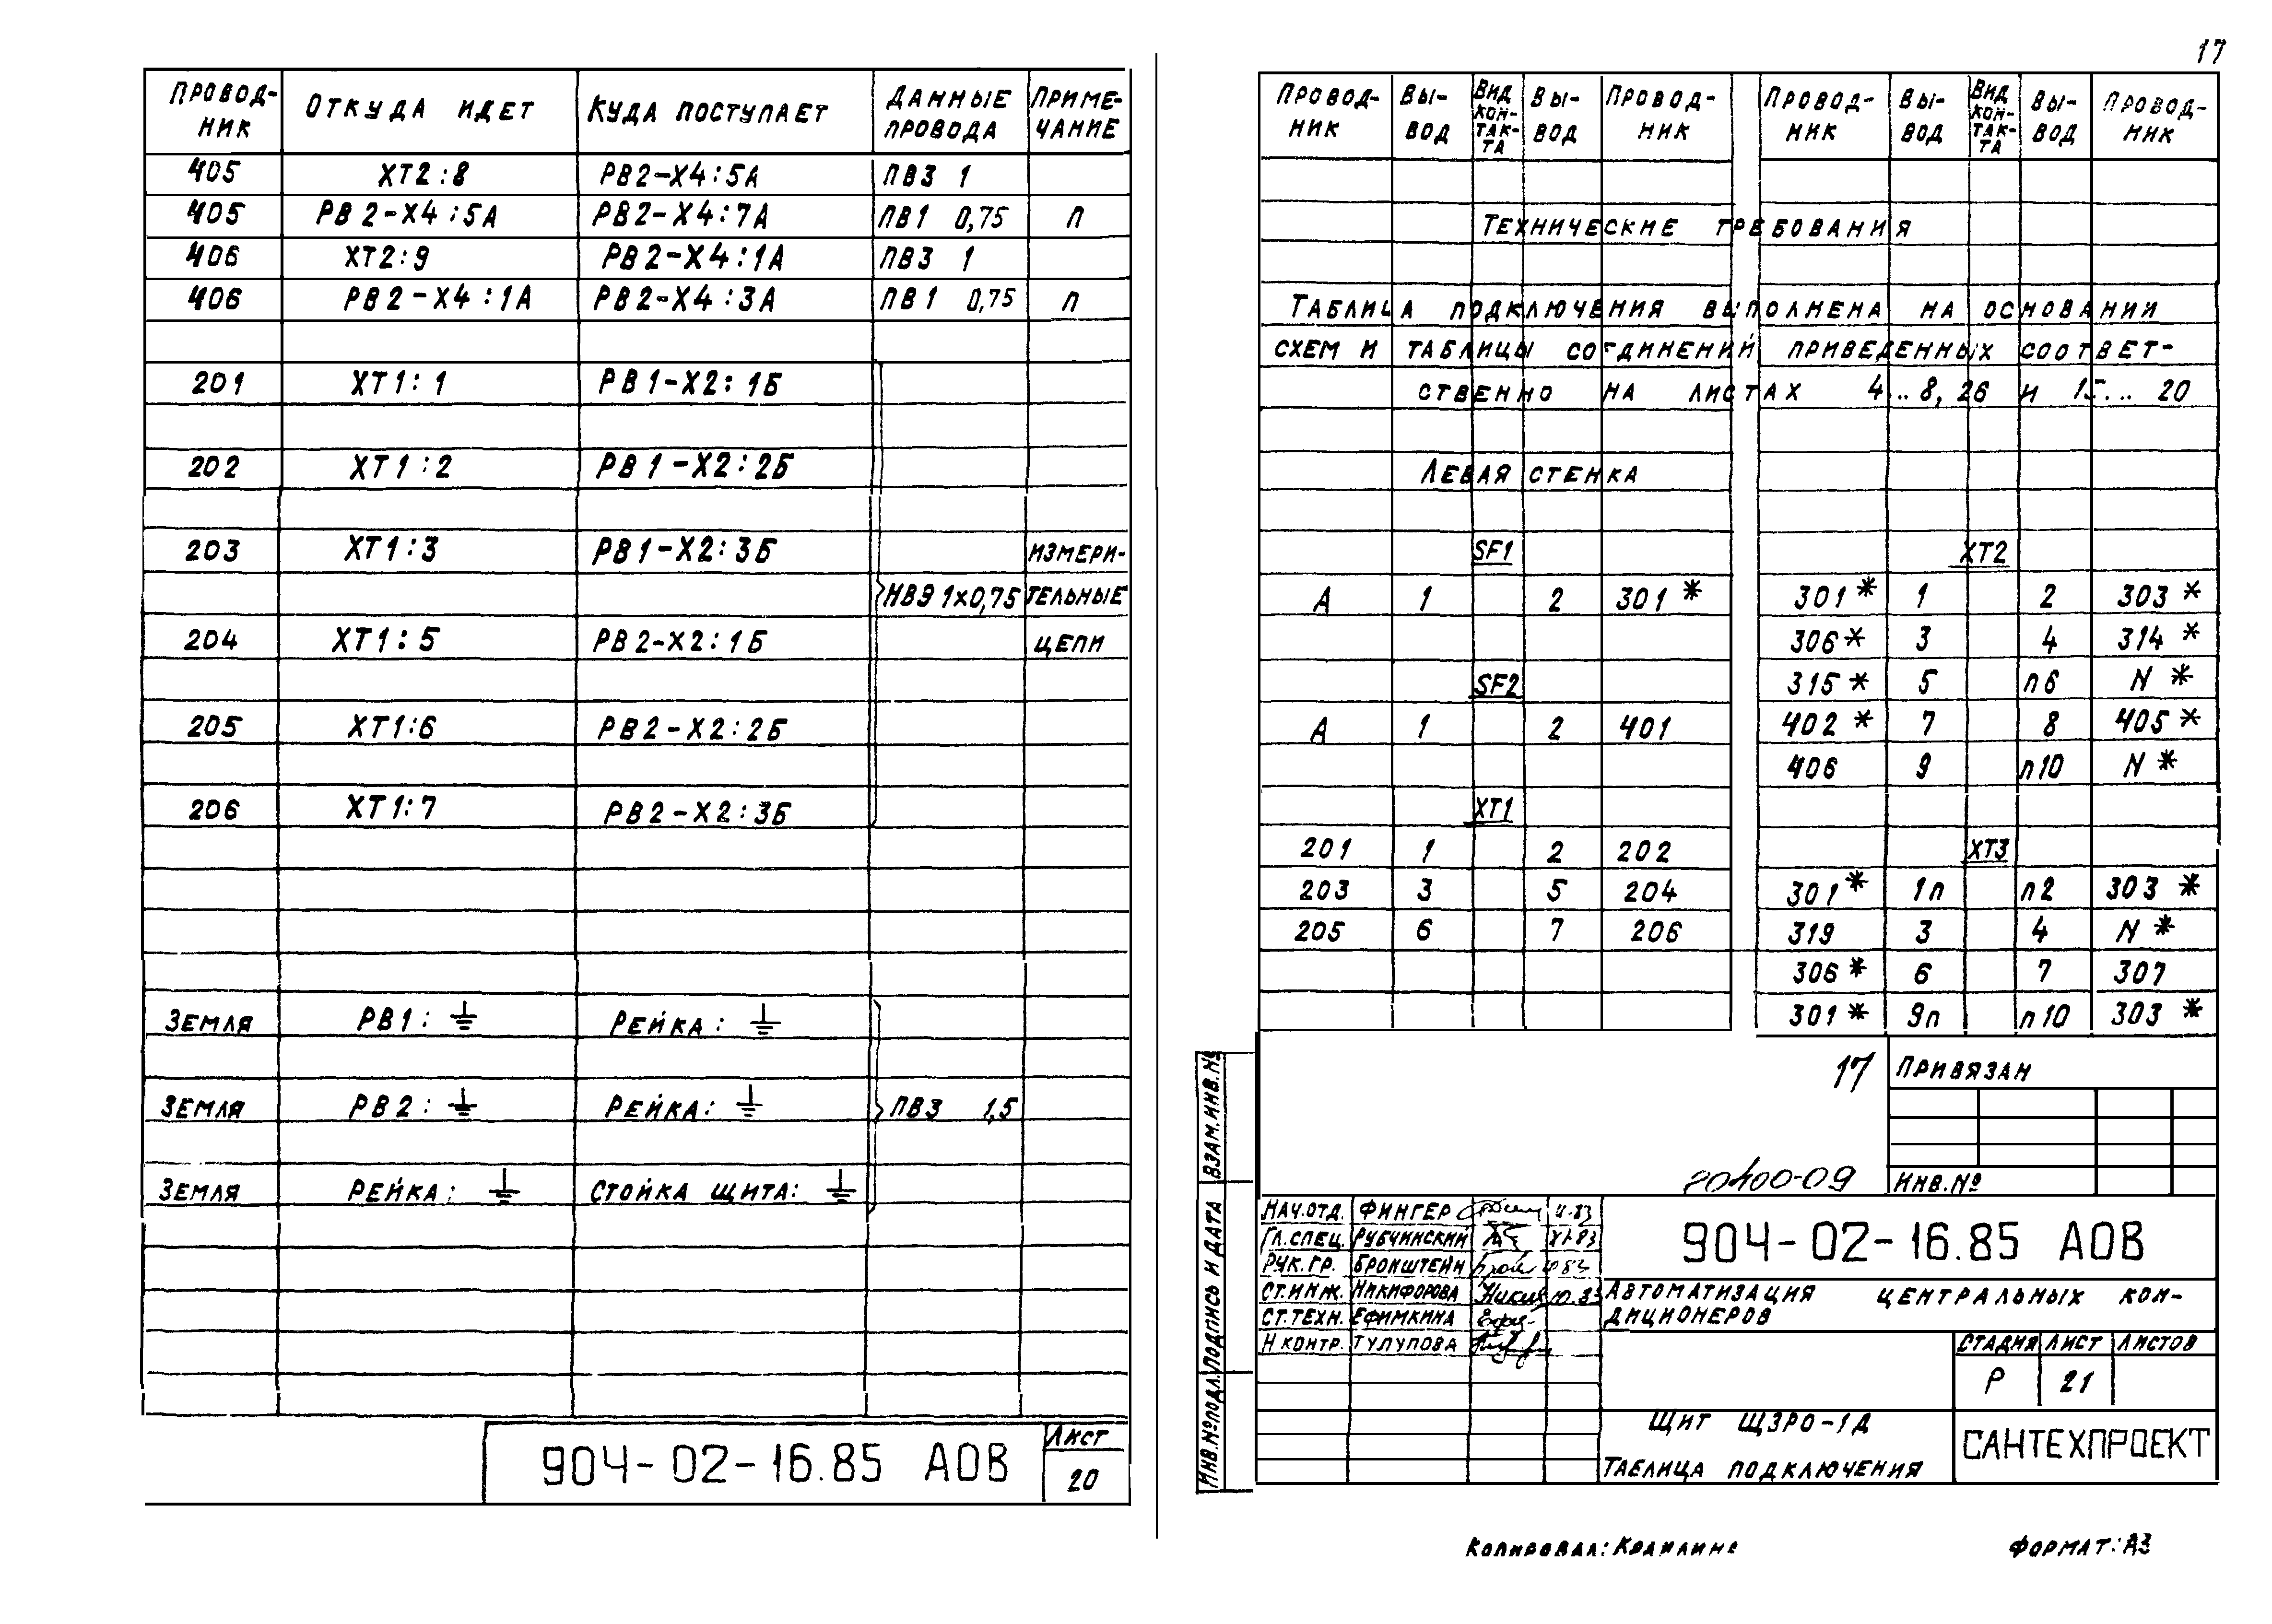 17
ПРОВОД-НИК ОТКУДА ИДЕТ КУДА ПОСТУПАЕТ ДАННЫЕ ПРОВОДА ПРИМЕ-ЧАНИЕ
405 XT2:8 РВ2-Х4:5А ПВ3 1
405 РВ2-Х4:5А РВ2-Х4:7А ПВ1 0,75 П
406 XT2:9 РВ2-Х4:1А ПВ3 1
406 РВ2-Х4:1А РВ2-Х4:3А ПВ1 0,75 П
201 XT1:1 РВ1-Х2:1Б
202 XT1:2 РВ1-Х2:2Б
203 XT1:3 РВ1-Х2:3Б ИЗМЕРИ-
НВЭ 1х0,75 ТЕЛЬНЫЕ
204 XT1:5 РВ2-Х2:1Б ЦЕПИ
205 XT1:6 РВ2-Х2:2Б
206 XT1:7 РВ2-Х2:3Б
ЗЕМЛЯ РВ1: ⏚ РЕЙКА: ⏚
ЗЕМЛЯ РВ2: ⏚ РЕЙКА: ⏚ ПВ3 1,5
ЗЕМЛЯ РЕЙКА: ⏚ СТОЙКА ЩИТА: ⏚
904-02-16.85 АОВ
ЛИСТ
20
ПРОВОД-НИК ВЫ-ВОД ВИД КОН-ТАК-ТА ВЫ-ВОД ПРОВОД-НИК ПРОВОД-НИК ВЫ-ВОД ВИД КОН-ТАК-ТА ВЫ-ВОД ПРОВОД-НИК
ТЕХНИЧЕСКИЕ ТРЕБОВАНИЯ
ТАБЛИЦА ПОДКЛЮЧЕНИЯ ВЫПОЛНЕНА НА ОСНОВАНИИ
СХЕМ И ТАБЛИЦЫ СОЕДИНЕНИЙ ПРИВЕДЕННЫХ СООТВЕТ-
СТВЕННО НА ЛИСТАХ 4..8, 26 И 15... 20
ЛЕВАЯ СТЕНКА
SF1
А 1 2 301*
SF2
А 1 2 401
XT1
201 1 2 202
203 3 5 204
205 6 7 206
XT2
301* 1 2 303*
306* 3 4 314*
315* 5 П6 N*
402* 7 8 405*
406 9 П10 N*
XT3
301* 1П П2 303*
319 3 4 N*
306* 6 7 307
301* 9П П10 303*
17
ПРИВЯЗАН
ИНВ.№
20400-09
ВЗАМ.ИНВ.№
ПОДПИСЬ И ДАТА
ИНВ.№ПОДЛ.
НАЧ.ОТД. ФИНГЕР
ГЛ.СПЕЦ. РУБЧИНСКИЙ
РУК.ГР. БРОНШТЕЙН
СТ.ИНЖ. НИКИФОРОВА
СТ.ТЕХН. ЕФИМКИНА
Н КОНТР. ТУЛУПОВА
904-02-16.85 АОВ
АВТОМАТИЗАЦИЯ ЦЕНТРАЛЬНЫХ КОН-
ДИЦИОНЕРОВ
СТАДИЯ ЛИСТ ЛИСТОВ
Р 21
ЩИТ ЩЗРО-1Д
ТАБЛИЦА ПОДКЛЮЧЕНИЯ
САНТЕХПРОЕКТ
КОПИРОВАЛ:
ФОРМАТ: А3